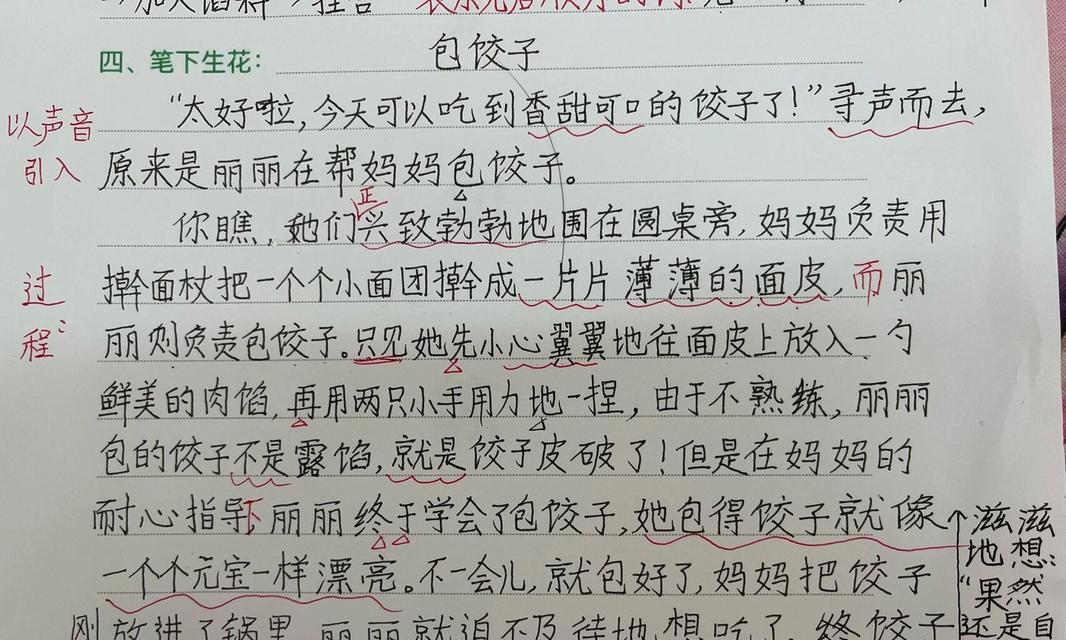 四、笔下生花：
包饺子
“太好啦，今天可以吃到香甜可口的饺子了！”寻声而去，
以声音
引入
原来是丽丽在帮妈妈包饺子。
正
你瞧，她们兴致勃勃地围在圆桌旁，妈妈负责用
过
程：
擀面杖把一个个小面团擀成一片片薄薄的面皮，而丽
丽则负责包饺子。只见她先小心翼翼地往面皮上放入一勺
鲜美的肉馅，再用两只小手用力地一捏，由于不熟练，丽丽
包的饺子不是露馅，就是饺子皮破了！但是在妈妈的
耐心指导下丽丽终于学会了包饺子，她包得饺子就像
一个个元宝一样漂亮。不一会儿，就包好了，妈妈把饺子
刚放进了锅里，丽丽就迫不及待地想吃了，
滋滋
地想：
“果然
还是自